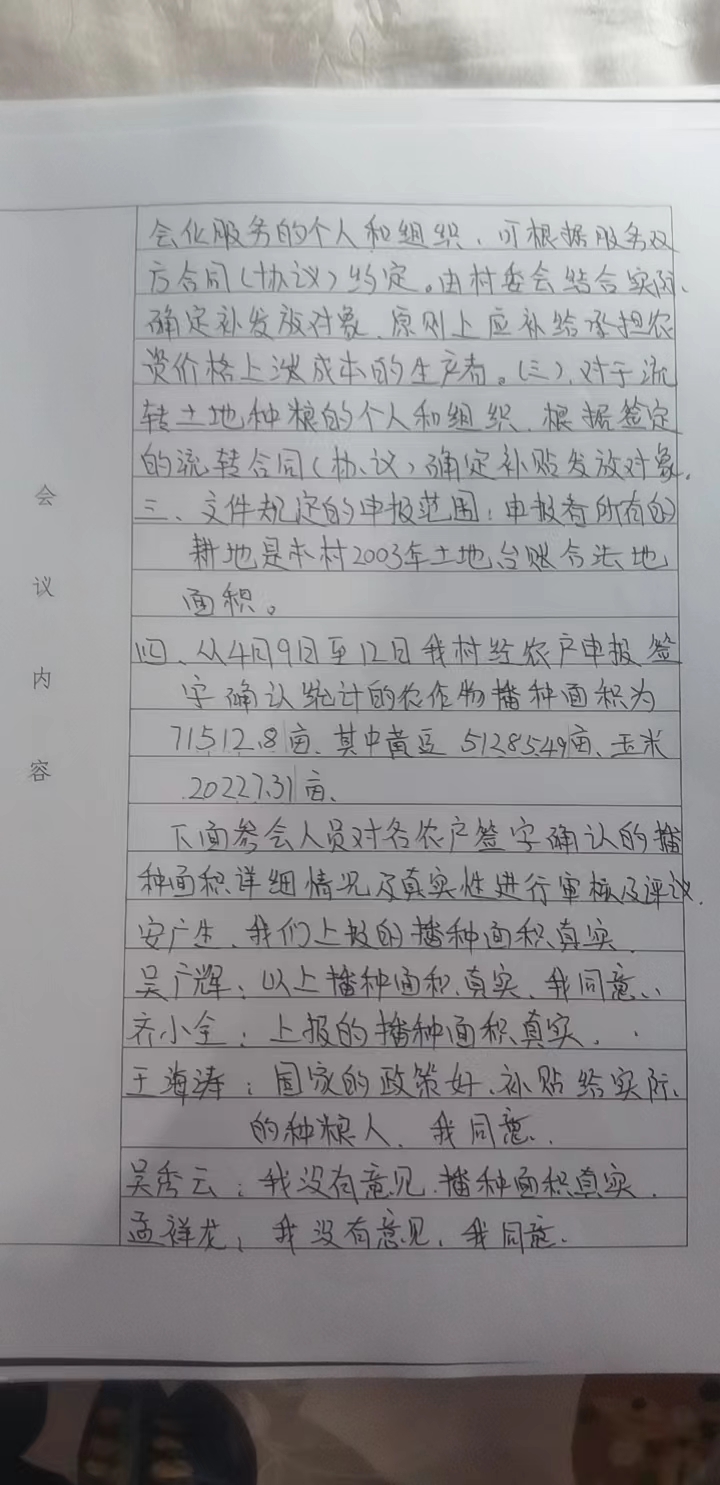 会议内容
会化服务的个人和组织、可根据服务双
方合同（协议）约定。由村委会结合实际、
确定补发放对象、原则上应补给承担农
资价格上涨成本的生产者。（三）、对于流
转土地种粮的个人和组织、根据签定
的流转合同（协议）确定补贴发放对象.
三、文件规定的申报范围：申报者所有的
耕地是本村2003年土地台账合法地
面积。
四、从4月9日至12日我村经农户申报签
字确认统计的农作物播种面积为
71512.8亩、其中黄豆 51285.49亩、玉米
20227.31亩、
下面参会人员对各农户签字确认的播
种面积详细情况及真实性进行审核及评议.
安广生、我们上报的播种面积真实.
吴广辉：以上播种面积、真实、我同意、
齐小全：上报的播种面积真实.
王海涛：国家的政策好、补贴给实际、
的种粮人、我同意.
吴秀云：我没有意见、播种面积真实.
孟祥龙：我没有意见、我同意.